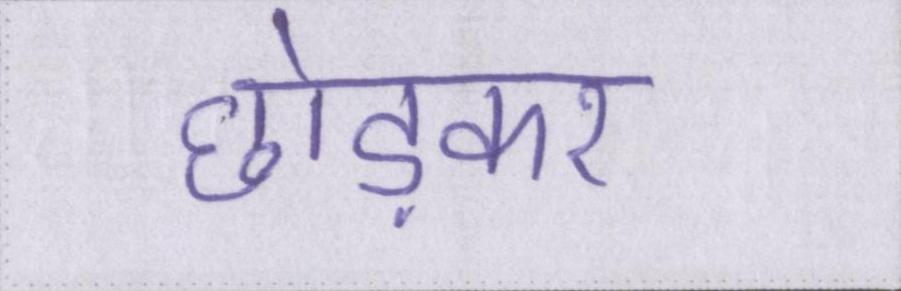 छोड़कर